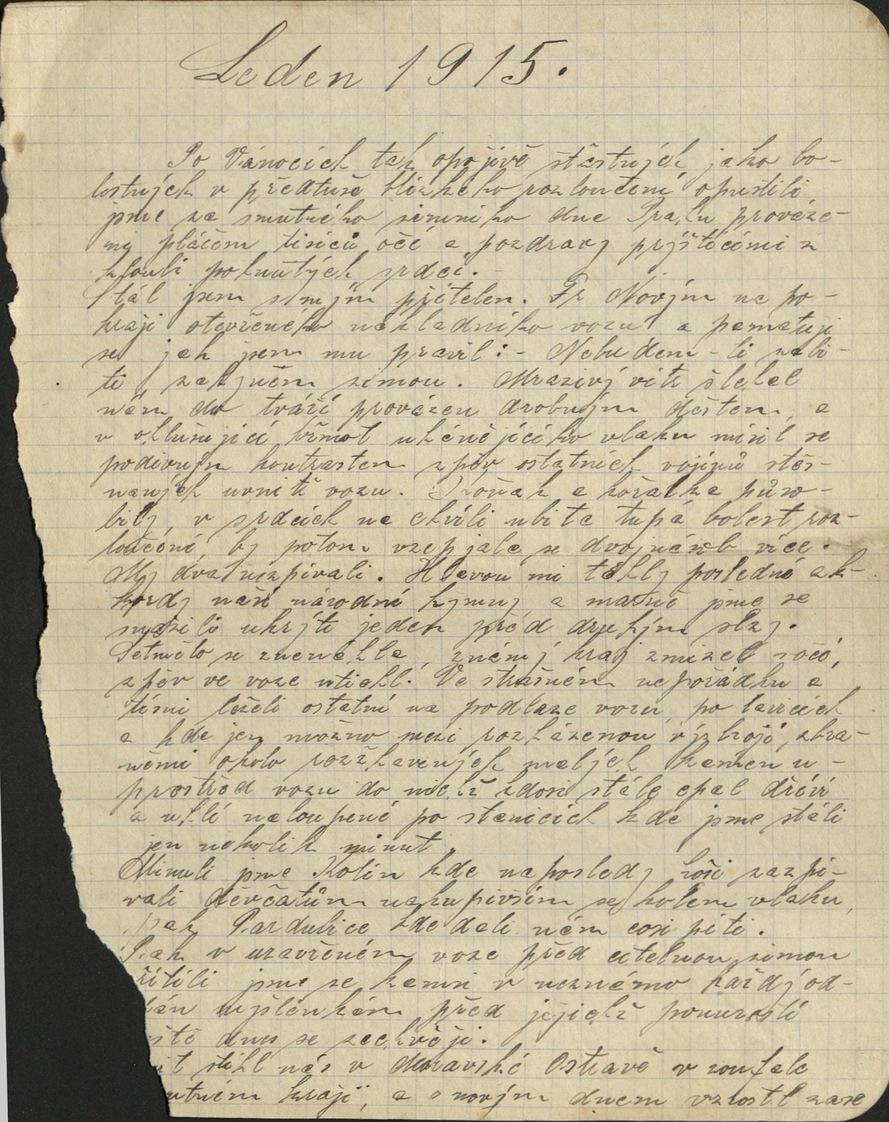 Leden 1915.
Po Vánocích tak opojivě šťastných jako bo-
lestných v předtuše blízkého rozloučení opustili
jsme za smutného zimního dne Prahu prováze-
ni pláčem tisíců očí a pozdravy prýštícími z
hloubi pohnutých srdcí. -
Stál jsem s mým přítelem. Fr. Novým na po-
kraji otevřeného nákladního vozu a pamatuji
se jak jsem mu pravil: - Nebudem-li zabi-
ti zahynem zimou. Mrazivý vítr šlehal
nám do tváří provázen drobným deštěm, a
v ohlušující hřmot uhánějícího vlaku mísil se
podivným kontrastem zpěv ostatních vojínů stěs-
naných uvnitř vozu. a kořalka půso-
bily, v srdcích na chvíli ubita tupá bolest roz-
loučení, by potom vzepjala se dvojnásob více.
My dva nezpívali. Hlavou mi táhly poslední ak-
kordy naší národní hymny a marně jsme se
snažili ukrýti jeden před druhým slzy.
Setmělo se znenáhla, známý kraj zmizel zočí,
zpěv ve voze utichl. Ve strašném nepořádku a
tísni leželi ostatní na podlaze vozu, po lavicích
a kde jen možno mezi rozházenou výzbrojí, chrá-
něni okolo rozžhavených malých kamen u-
prostřed vozu do nichž kdosi stále cpal dříví
a uhlí naloupené po stanicích kde jsme stáli
jen několik minut.
Minuli jsme Kolín kde naposledy hoši zazpí-
vali děvčatům nakupivším se kolem vlaku,
pak Pardubice kde dali nám cosi píti.
Pak v uzavřeném voze před citelnou zimou
řítili jsme se kamsi v neznámo každý od-
dán myšlenkám před jejichž ponurostí
ještě dnes se zachvěji.
stihl nás v Moravské Ostravě v zoufale
smutném kraji, a s novým dnem vzrostl zase